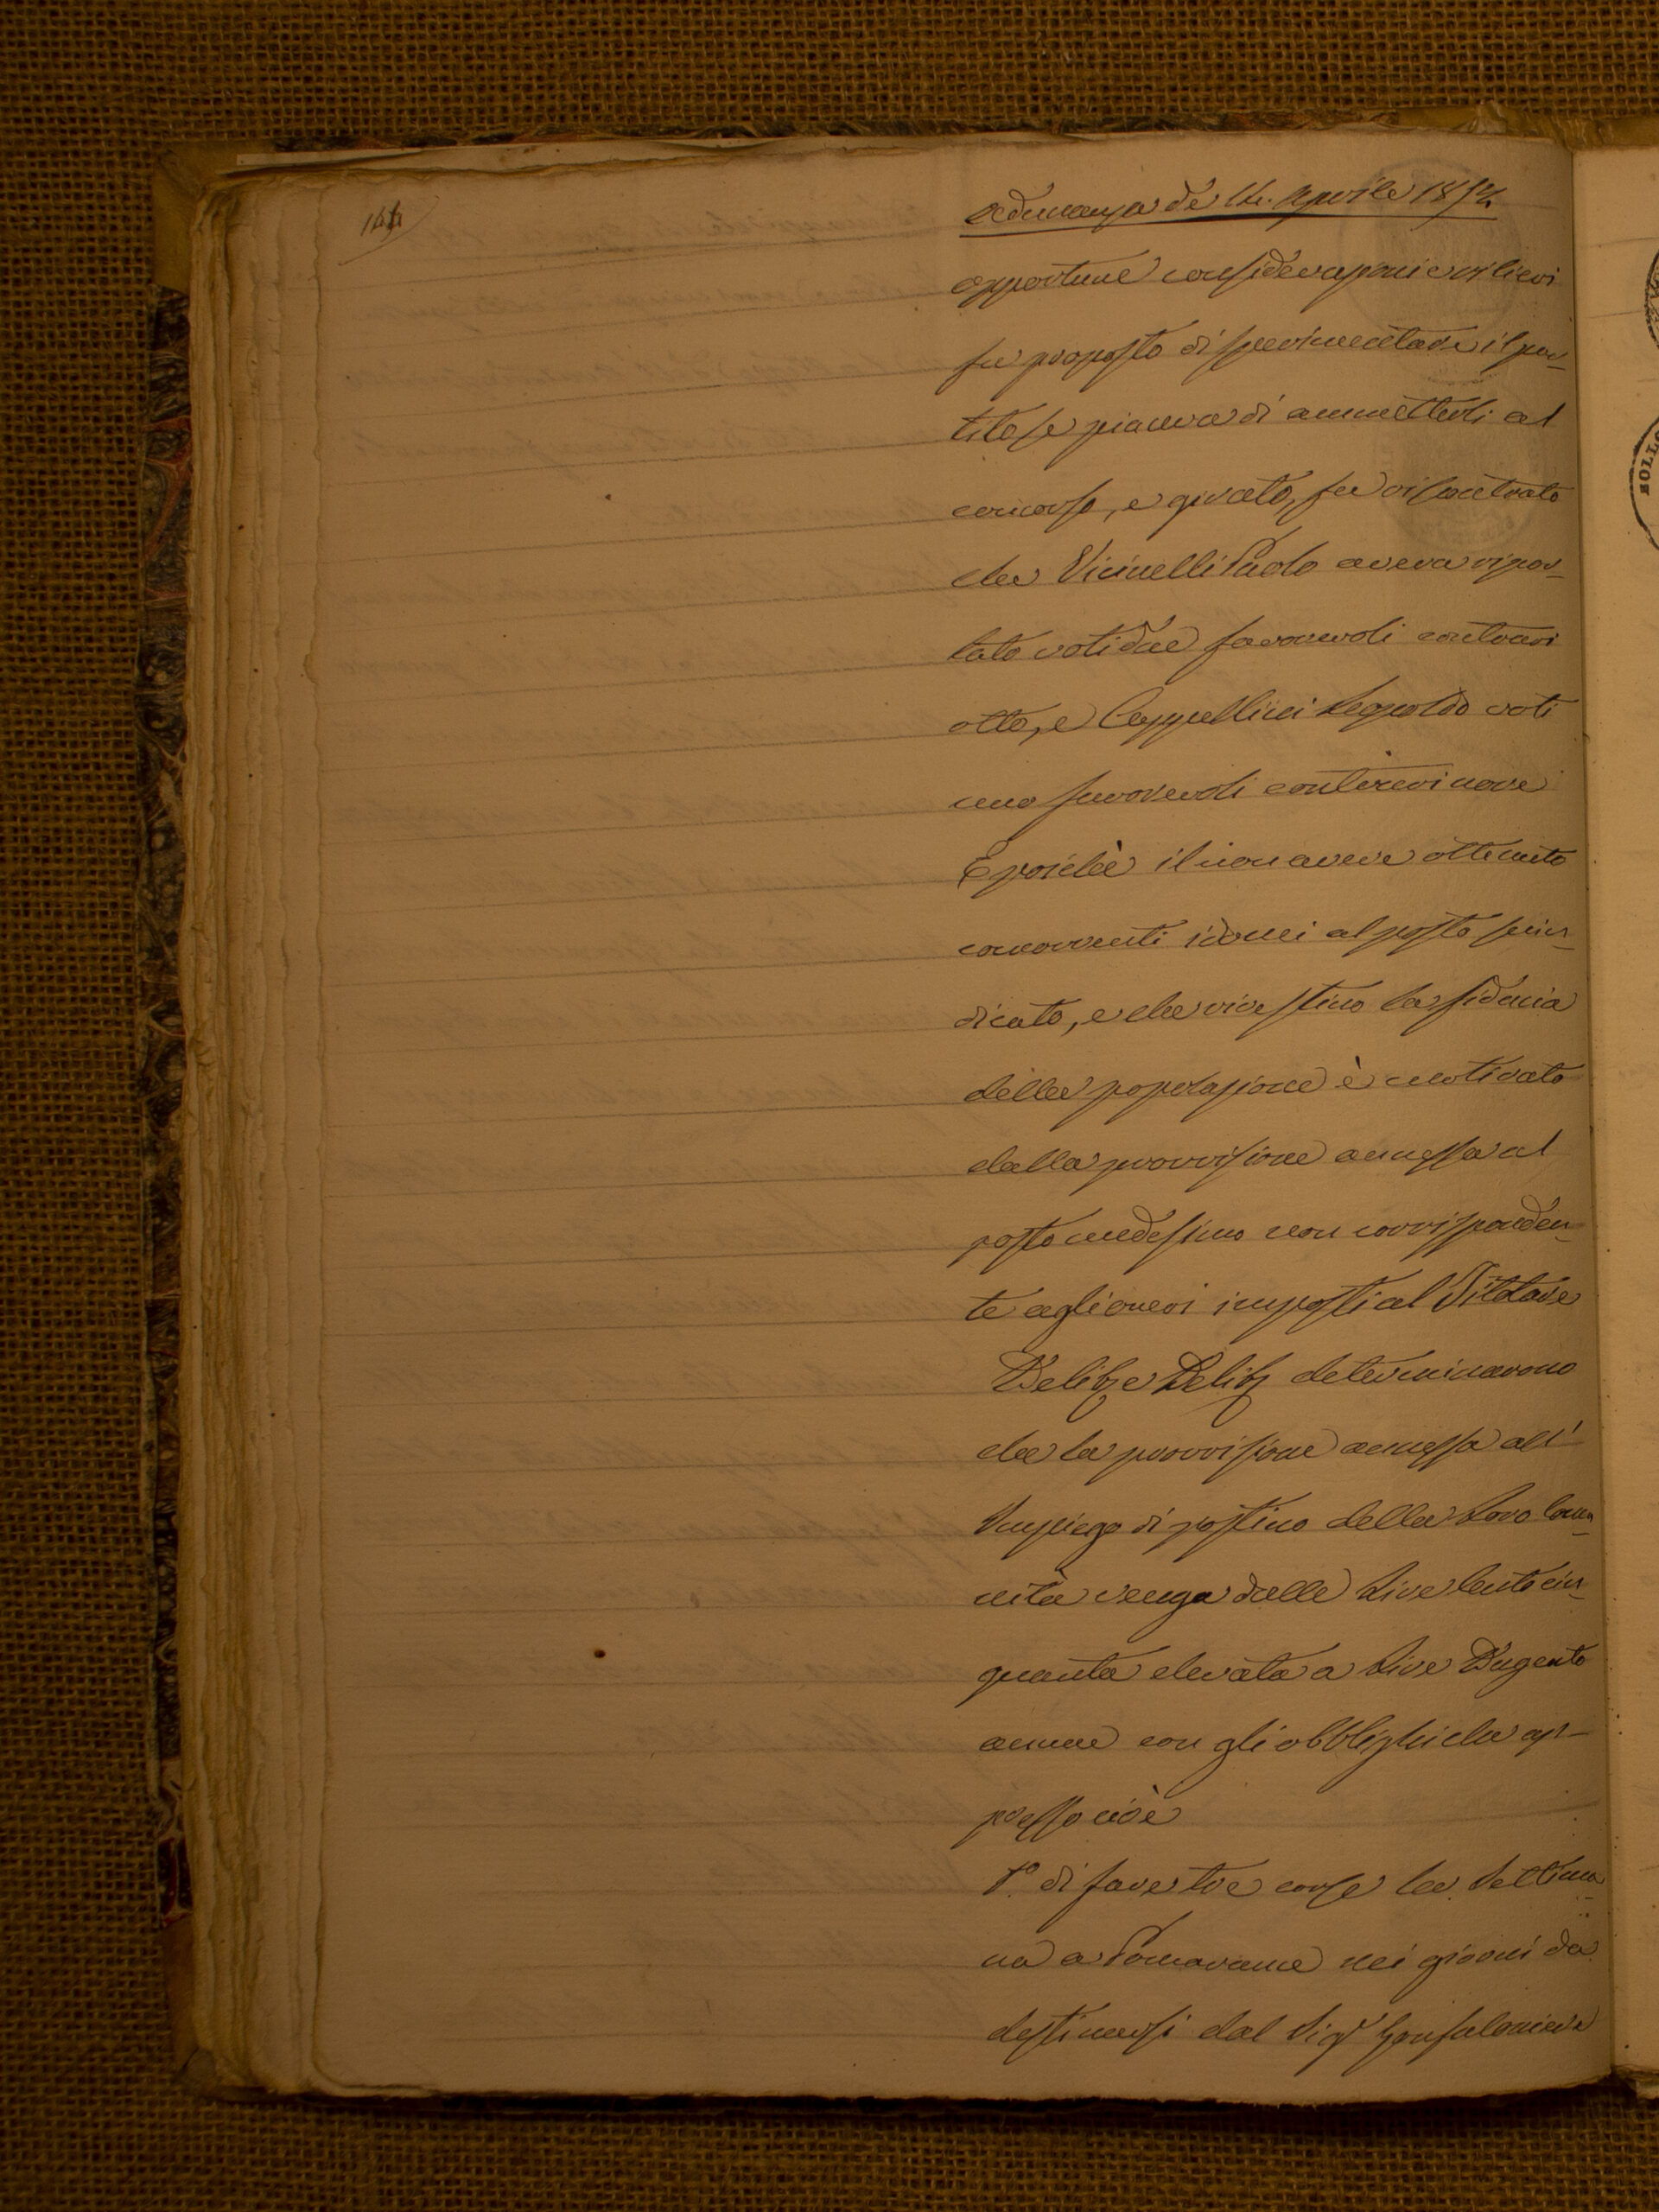 Adunanza de' 14. Aprile 1852
opportune considerazioni e rilievi
fu proposto di sperimentare il par-
tito se piaceva di ammetterli al
concorso, e girato, fu riscontrato
che Vicinelli Paolo aveva ripor-
tato voti due favorevoli contrari
otto, e Cappellini Leopoldo voti
uno favorevoli contrari nove
E poichè il non avere ottenuto
concorrenti idonei al posto suin-
dicato, e che rivestino la fiducia
della popolazione è motivato
dalla provvisione annessa al
posto medesimo non corrisponden-
te agli oneri imposti al Titolare
Delib e Delib determinarono
che la provvisione annessa all'
Impiego di postino della Loro Comu
nità venga dalle Lire Cento cin-
quanta elevata a Lire Dugento
annue con gli obblighi che ap-
presso cioè
1º. di fare tre corse la Settima
na a Pomarance nei giorni da
destinarsi dal Sigr Gonfaloniere